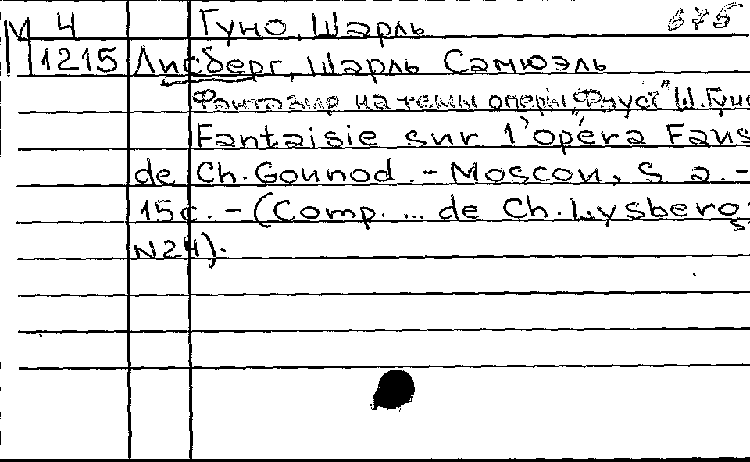 М 4 Гуно, Шарль 675
1215 Лисберг, Шарль Самюэль
Фантазия на темы оперы „Фауст" Ш. Гуно
Fantaisie sur l'opéra Faus
de Ch. Gounod. - Moscou, s. a. -
15с. - (Comp. ... de Ch. Lysberg;
N24).